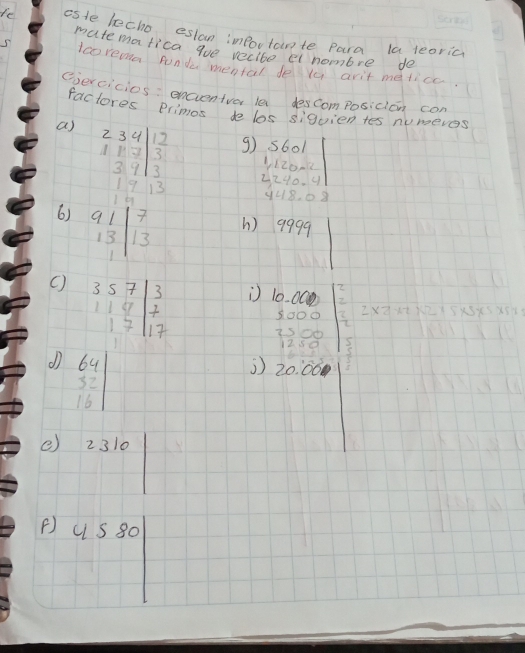 este hecho eslan importante para la teoria
matematica que recibe el nombre de
teorema funda mental de la arit metica.
ejercicios: encuentrar la descomposición con
factores primos de los siguien tes numeros
a) 234 12
117 3
39 3
13 13
b) 91 7
13 13
1
c) 357 3
119 7
17 17
1
d) 64
32
16
e) 2310
f) 4580
g) 5601
1120.2
2240.4
448.08
h) 9999
i) 10.000 2
5000 2
2500 2
1250 2
j) 20.000